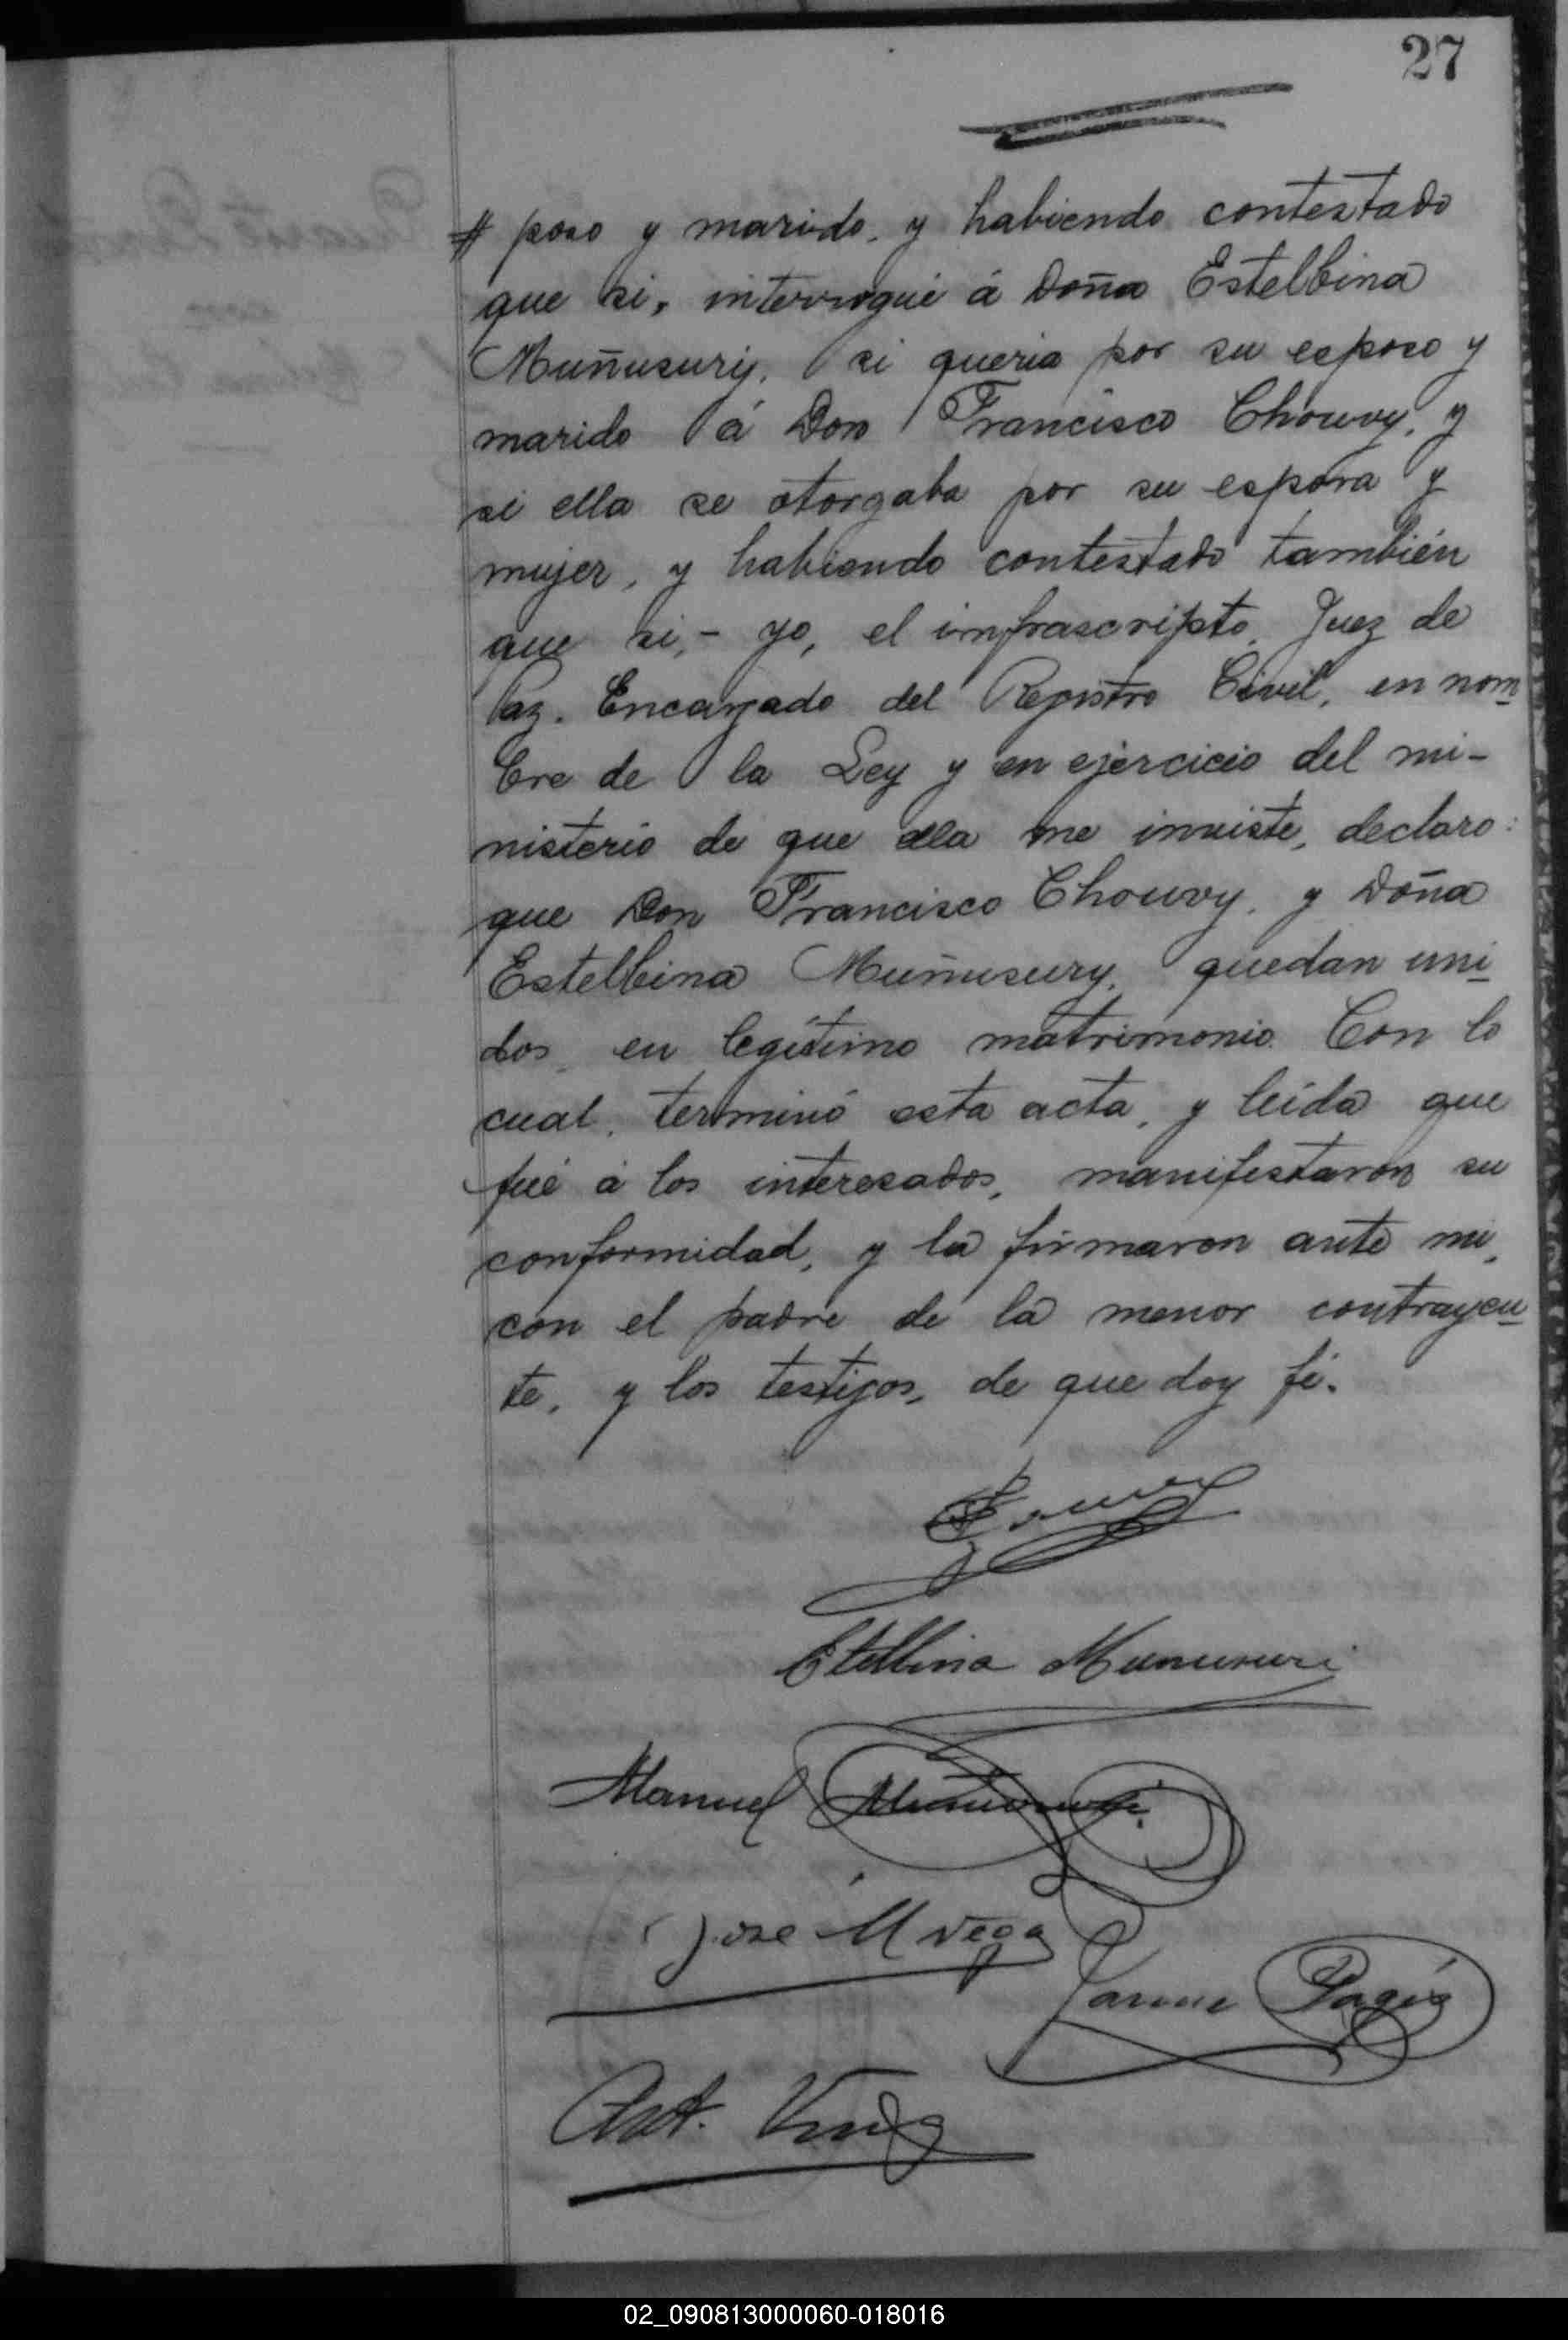 27
# poso y marido, y habiendo contestado
que si, interrogué á Doña Estelbina
Muñusury, si queria por su esposo y
marido á Don Francisco Chouvy, y
si ella se otorgaba por su esposa y
mujer, y habiendo contestado también
que si, - yo, el infrascripto, Juez de
Paz, Encargado del Registro Civil, en nom
bre de la Ley y en ejercicio del mi-
nisterio de que ella me inviste, declaro:
que Don Francisco Chouvy, y Doña
Estelbina Muñusury, quedan uni
dos, en legítimo matrimonio. Con lo
cual, terminó esta acta, y leída que
fué á los interesados, manifestaron su
conformidad, y la firmaron ante mi,
con el padre de la menor contrayen
te, y los testigos, de que doy fé.
Etelbina Munusuri
Manuel
José M Vega
Jaime Pagés
Ant.
02_090813000060-018016